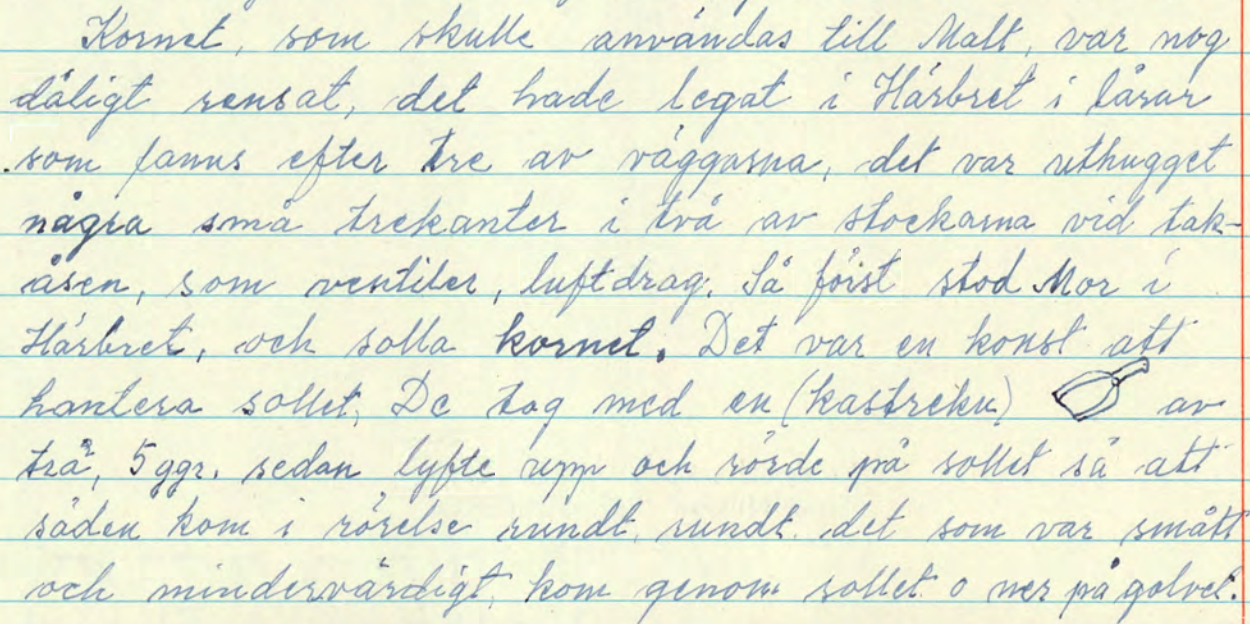 Kornet, som skulle användas till Malt, var nog
dåligt rensat, det hade legat i Härbret i lårar
som fanns efter tre av väggarna, det var uthugget
några små trekanter i två av stockarna vid tak-
åsen, som ventiler, luftdrag. Så först stod Mor i
Härbret, och solla kornet. Det var en konst att
hantera sollet, De tog med en (kastreku) av
trä, 5 ggr. sedan lyfte upp och rörde på sollet så att
säden kom i rörelse rundt, rundt. det som var smått
och mindervärdigt, kom genom sollet o ner på golvet.